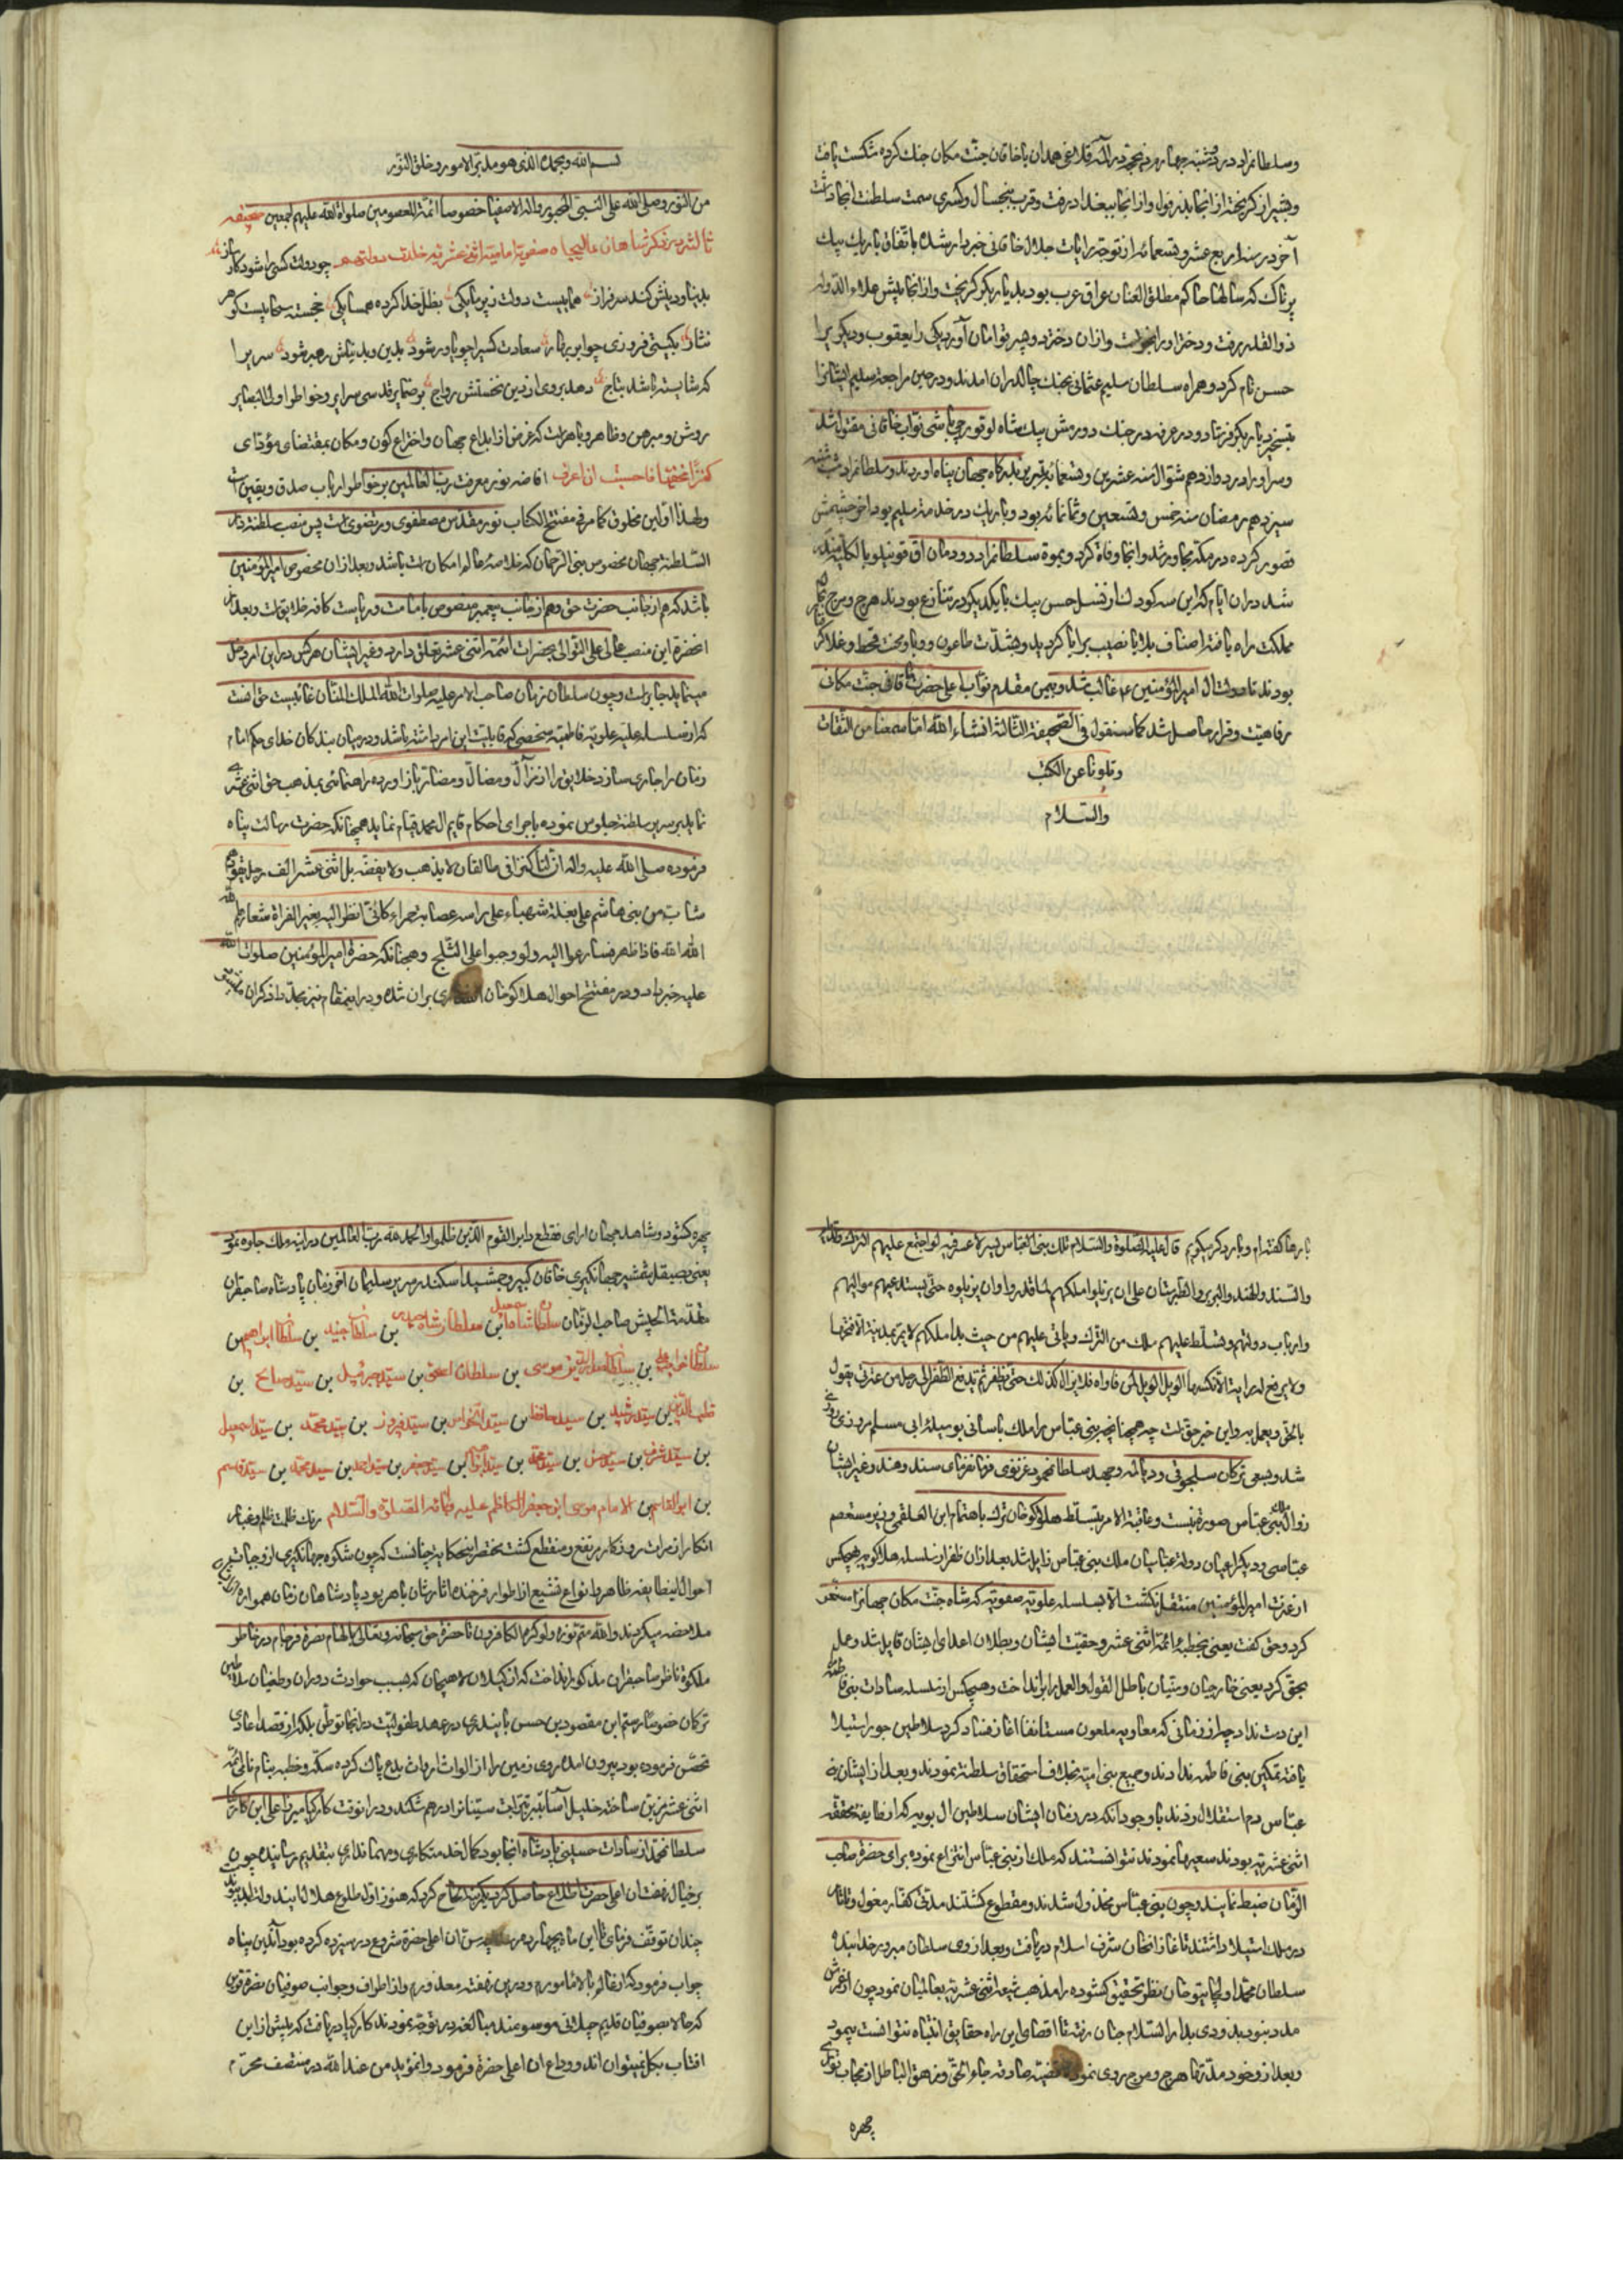 وسلطانمراد در دوشنبه چهاردهم ذیحجه در المه قلاغی همدان با خاقان جنت مکان جنك کرده شکست یافت
وبشیراز کریخته از انجا بدزفول واز انجا ببغداد رفت وقرب پنجسال وکسری سمت سلطنت انجا داشت
آخر در سنه اربع عشر وتسعمائه از توجه رایات جلال خاقانی خبردار شده باتفاق باریك بیك
پرناك که سالها حاکم مطلق العنان عراق عرب بود بدیار بکر کریخت واز انجا پیش علاء الدوله
ذو القدر رفت ودختر او را بخواست وازان دختر دو پسر توامان آورد یکی را یعقوب ودیکری را
حسن نام کرد وهمراه سلطان سلیم عثمانی بجنك چالدران امدند ودر حین مراجعت سلیم ایشانرا
بتسخیر دیار بکر فرستاد ودر عرفه در جنك دورمش بیك شاه لو قورچی باشی نواب خاقانی مقتول شد
وسر او را در دوازدهم شوال سنه عشرین وتسعمائه بتبریز بدرکاه جهان پناه اوردند وسلطانمراد شب شنبه
سیزدهم رمضان سنه خمس وتسعین وثمانمائه بود وباریك در خدمت سلیم بود اخر چشمش
قصور کرده در مکه مجاور شد وانجا وفاة کرد وبموت سلطانمراد دودمان اق قوینلو بالکلیه
شد دران ایام که این سه کودك از نسل حسن بیك بایکدیکر در تنازع بودند هرج ومرج
مملکت راه یافته اصناف بلایا نصیب برایا کردید وبشدت طاعون ووبا ومحنت قحط وغلا
بودند تا صولت ال امیر المؤمنین ع غالب شد وبیمن مقدم نواب اعلیحضرت خاقانی جنت مکانی
رفاهیت وقرار حاصل شد کما سنقول فی الصحیفة الثالثة انشاء الله اما سمعنا من الثقات
وتلونا عن الکتب
والسلام
بسم الله وبحمده الذی هو مدبر الامور وخلق النور
من النور وصلی الله علی النبی المحبور واله الاصفیا خصوصا ائمة المعصومین صلواة الله علیهم اجمعین صحیفه
ثالثه در ذکر شاهان عالیجاه صفویه امامیه اثنی عشریه خلدت دولتهم چو دولت کسی را شود کارساز
بدنیا ودینش کند سرفراز همایست دولت زیر پایکی بظل خدا کرده همسایکی خجسته سحابیست کوهر
نثار بکیتی فروزی چو ابر بهار سعادت کسیرا چو یاور شود بدین وبدنیاش رهبر شود سریرا
که شایسته باشد بتاج دهد بروی از دین نخستش رواج بر ضمایر قدسی سرایر وخواطر اولی البصایر
روشن ومبرهن وظاهر وباهرات که غرض از ابداع جهان واختراع کون ومکان بمقتضای مؤدای
کنزا مخفیا فاحببت ان اعرف افاضه نور معرفت رب العالمین بر خواطر ارباب صدق ویقین است
ولهذا اولین مخلوق کما مر فی مفتتح الکتاب نور مقدس مصطفوی ومرتضوی است پس منصب سلطنة دار
السلطنه جهان مخصوص بنبی الرحمان که خلاصه عالم امکان است باشد وبعد ازان مخصوص امیر المؤمنین
باشد که هم از جانب حضرت حق وهم از جانب پیغمبر منصوص بامامت وریاست کافه خلایق است وبعد از
انحضرة این منصب عالی علی التوالی بحضرات ائمه اثنی عشر تعلق دارد وغیر ایشان هرکس در این امر دخل
مینماید جابر است وچون سلطان زمان صاحب الامر علیه صلوات الله الملك المنان غائبست حق انست
که از سلسله علیه علویه فاطمیه شخصی که قابلیت این امر داشته باشد ودر میان بندکان خدای حکم امام
زمان را جاری سازد خلایق را از تزلزل ومضال ومضار باز اورده راهنمائی بمذهب حق اثنی عشریه
نماید بر سریر سلطنة جلوس نموده باجرای احکام قایم ال محمد قیام نماید همچنانکه حضرت رسالت پناه
فرموده صلی الله علیه واله ان لنا کنزا فی طالقان لا بذهب ولا بفضه بل اثنی عشر الف رجل یقودهم
شاب من بنی هاشم علی بغلة شهباء علی راسه عصابة حمراء کانی انظر الیه یعبر الفراة شعارهم
الله الله فاذا ظهر فسارعوا الیه ولو وجبوا علی الثلج وهمچنانکه حضرة امیر المؤمنین صلوات الله
علیه خبر داد ودر مفتتح احوال هلاکوخان بران شده ودر اینمقام نیز مجددا ذکران
بارها کفته ام وبار دکر میکویم قال علیه الصلوة والسلام ملك بنی العباس یسر لا عسر فیه لو اجتمع علیهم الترك والدیلم
والسند والهند والبربر والطبرستان علی ان یزیلوا ملکهم لما قدروا وان یزیلوه حتی یستدعیهم موالیهم
وارباب دولتهم وتسلط علیهم ملك من الترك ویاتی علیهم من حیث بدا ملکهم لا یمر بمدینة الا فتحها
ولا یرفع له رایة الا نکسها الویل الویل لمن ناواه فلا یزال کذلك حتی یظفر ثم یدفع الظفر الی رجل من عترتی یقول
بالحق ویعمل به واین خبر حق است چه همچنانچه بنی عباس را ملك باسانی بوسیله ابی مسلم مروزی
شد وبسعی ترکان سلجوقی ودیالمه وجهد سلطانمحمود غزنوی فرمانفرمای سند وهند وغیر ایشان
زوال ملك بنی عباس صورة نبست وعاقبة الامر بتسلط هلاکوخان ترك باهتمام ابن العلقمی وزیر مستعصم
عباسی ودیکر اعیان دولة عباسیان ملك بنی عباس زایل شد بعد ازان ظفر از سلسله هلاکو بهیچکس
از عترت امیر المؤمنین منتقل نکشت الا بسلسله علویه صفویه که شاه جنت مکان جهانرا مسخر
کرد وحق کفت یعنی بخطبه ائمه اثنی عشر وحقیت ایشان وبطلان اعدای ایشان قایل شد وعمل
بحق کرد یعنی خارجیان وسنیان باطل القول والعمل را برانداخت وهیچکس از سلسله سادات بنی فاطمه
این دست نداد چه از زمانی که معاویه ملعون مستانفا اغاز فساد کرد سلاطین جور استیلا
یافته تمکین بنی فاطمه ندادند وجمیع بنی امیه بخلاف استحقاق سلطنة نمودند وبعد از ایشان بنی
عباس دم استقلال زدند با وجود آنکه در زمان ایشان سلاطین ال بویه که از طایفه محققه
اثنی عشریه بودند سعیها نمودند نتوانستند که ملك از بنی عباس انتزاع نموده برای حضرة صاحب
الزمان ضبط نمایند وچون بنی عباس مخذول شدند ومقطوع کشتند مدتی کفار مغول وتاتار
در ملك استیلا داشتند تا غازانخان شرف اسلام دریافت وبعد از وی سلطان مبرور خدابنده
سلطان محمد اولجایتوخان بنظر تحقیق کشوده را مذهب شیعه اثنی عشریه بعالمیان نمود چون
مدد نبود بزودی بدار السلام جنان رفته تا اقصای این راه حقایق انتباه نتوانست پیمود
وبعد از وخود مدتها هرج ومرج روی نمود قضیه صادقه جاء الحق وزهق الباطل از حجاب
چهره
چهره کشود وشاهد جهان ارای فقطع دابر القوم الذین ظلموا والحمد لله رب العالمین در اینه ملك جلوه نمود
یعنی بصیقل شمشیر جهانکیری خاقان کبیر وجمشید اسکندر سریر سلیمان اخر زمان پادشاه صاحبقران
مقدمة الجیش صاحب الزمان سلطان شاه اسمعیل بن سلطان شاه حیدر بن سلطان جنید بن سلطان ابراهیم بن
سلطان خواجه علی بن سلطان صدر الدین موسی بن سلطان اسحق بن سید جبرئیل بن سید صالح بن
قطب الدین بن سید رشید بن سید حافظ بن سید الخواص بن سید فیروز بن سید محمد بن سید اسمعیل
بن سید شرف بن سید حسن بن سید محمد بن سید ابراهیم بن سید جعفر بن سید احمد بن سید محمد بن سید قاسم
بن ابو القاسم بن الامام موسی ابن جعفر الکاظم علیه وابائه الصلوة والسلام زنك ظلمت ظلم وغبار
انکار از مرات روزکار مرتفع ومنقطع کشت مختصر اینحکایة چنانست که چون شکوه جهانکیری از وجنات
احوال اینطایفه ظاهر وانواع تشییع از اطوار فرخنده اثارشان باهر بود پادشاهان زمان همواره
ملاحضه میکردند والله متم نوره ولو کره الکافرون تا حضرة حق سبحانه وتعالی بالهام نصرة فرجام در خاطر
ملکوة ناظر صاحبقران مذکور انداخت که از کیلان لاهیجان که بسبب حوادث دوران وطغیان سلاطین
ترکان خصوصا رستم ابن مقصود بن حسن بایندری در عهد طفولیت در انجا توطن بلکه از قصد اعادی
تحصن فرموده بود بیرون امده روی زمین را از الواث ارواث بدع پاك کرده سکه وخطبه بنام نامی ائمه
اثنی عشر مزین ساخته خلیل آسا تبر تبرا بت سنیانرا درهم شکند ودر انوقت کارکیا میرزا علی ابن کارکیا
سلطانمحمد از سادات حسینی پادشاه انجا بود کمال خدمتکاری ومهمانداری بتقدیم رسانیده چون
بر خیال نهضت ان اعلیحضرت اطلاع حاصل کرد الحاح کرد که هنوز اول طلوع هلال
چندان توقف فرمای تا این ماه بچهارده رسد سن ان اعلیحضرة شروع در سیزده کرده بود آندین پناه
جواب فرمود که از عالم بالا مامورم ودرین نهضت معذورم واز اطراف وجوانب صوفیان نصرة قرین
که حالا بصوفیان قدیم جیلانی موسومند مبالغه در توجه نمودند کارکیا دریافت که بیش از این
افتاب بکل نمیتوان اندود وداع ان اعلیحضرة فرمود وانمؤید من عند الله در منتصف محرم